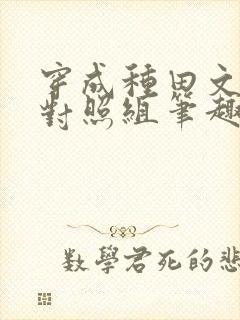 穿成種田文
對照組筆趣
數學君死的悲